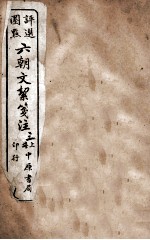 評選
圈點
六朝文絜箋注
上海
中原書局
印行